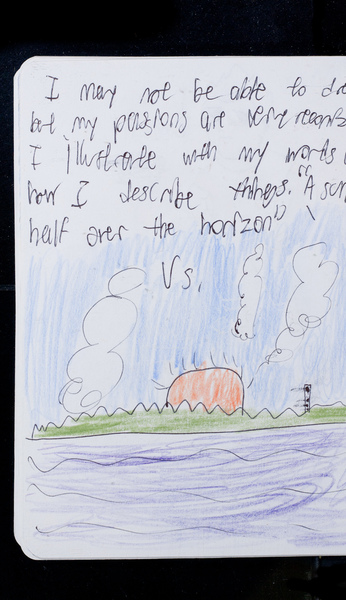 I may not be able to dr
but my passions are very recogniz
I illustrate with my words
how I describe things. "A sun
half over the horizon"
Vs.